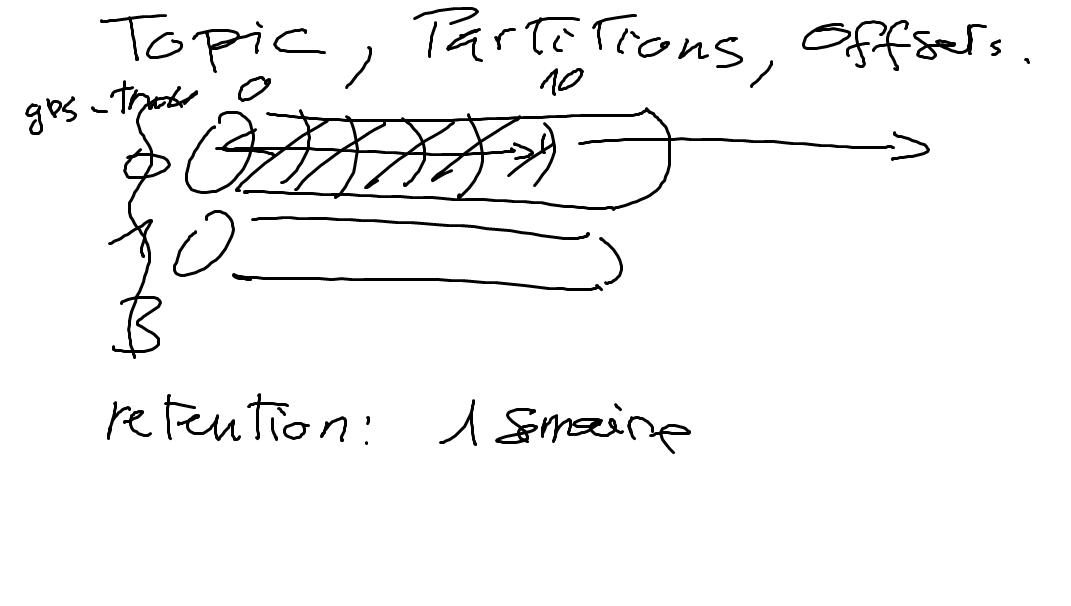 Topic, Partitions, Offsets.
0 10
0
1
retention: 1 semaine